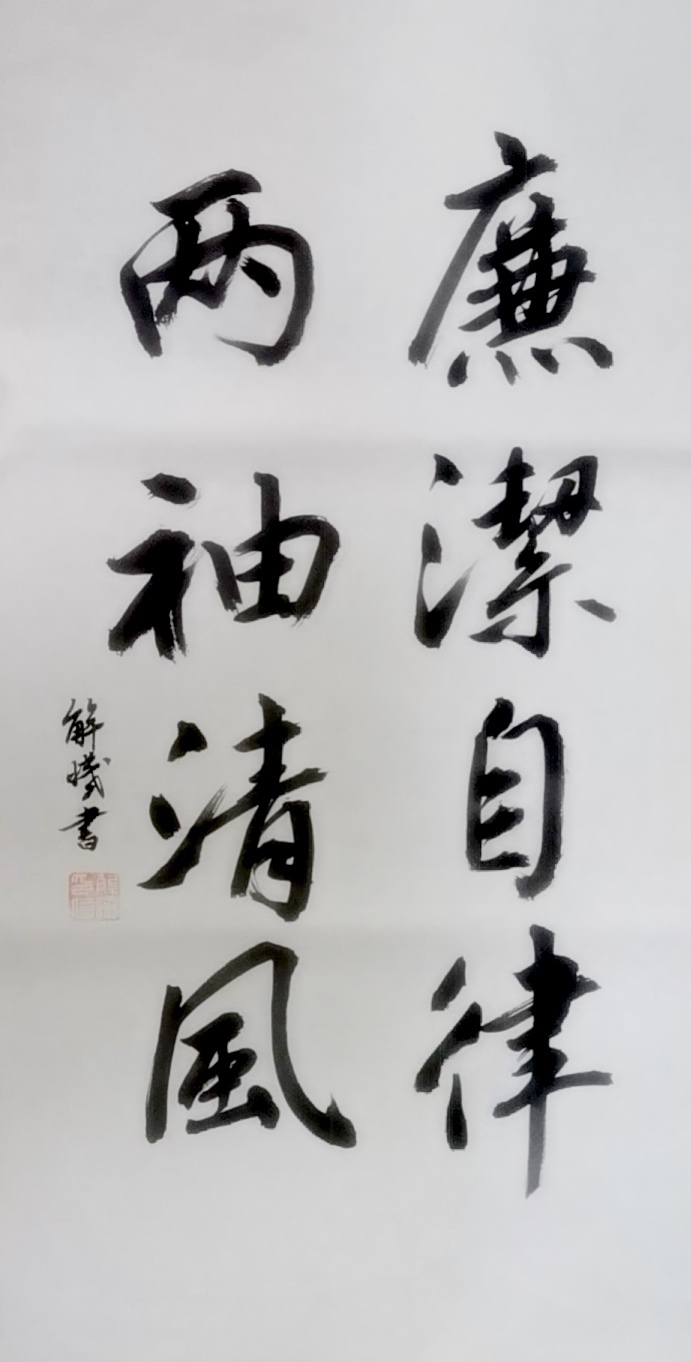 廉潔自律
两袖清風
解書